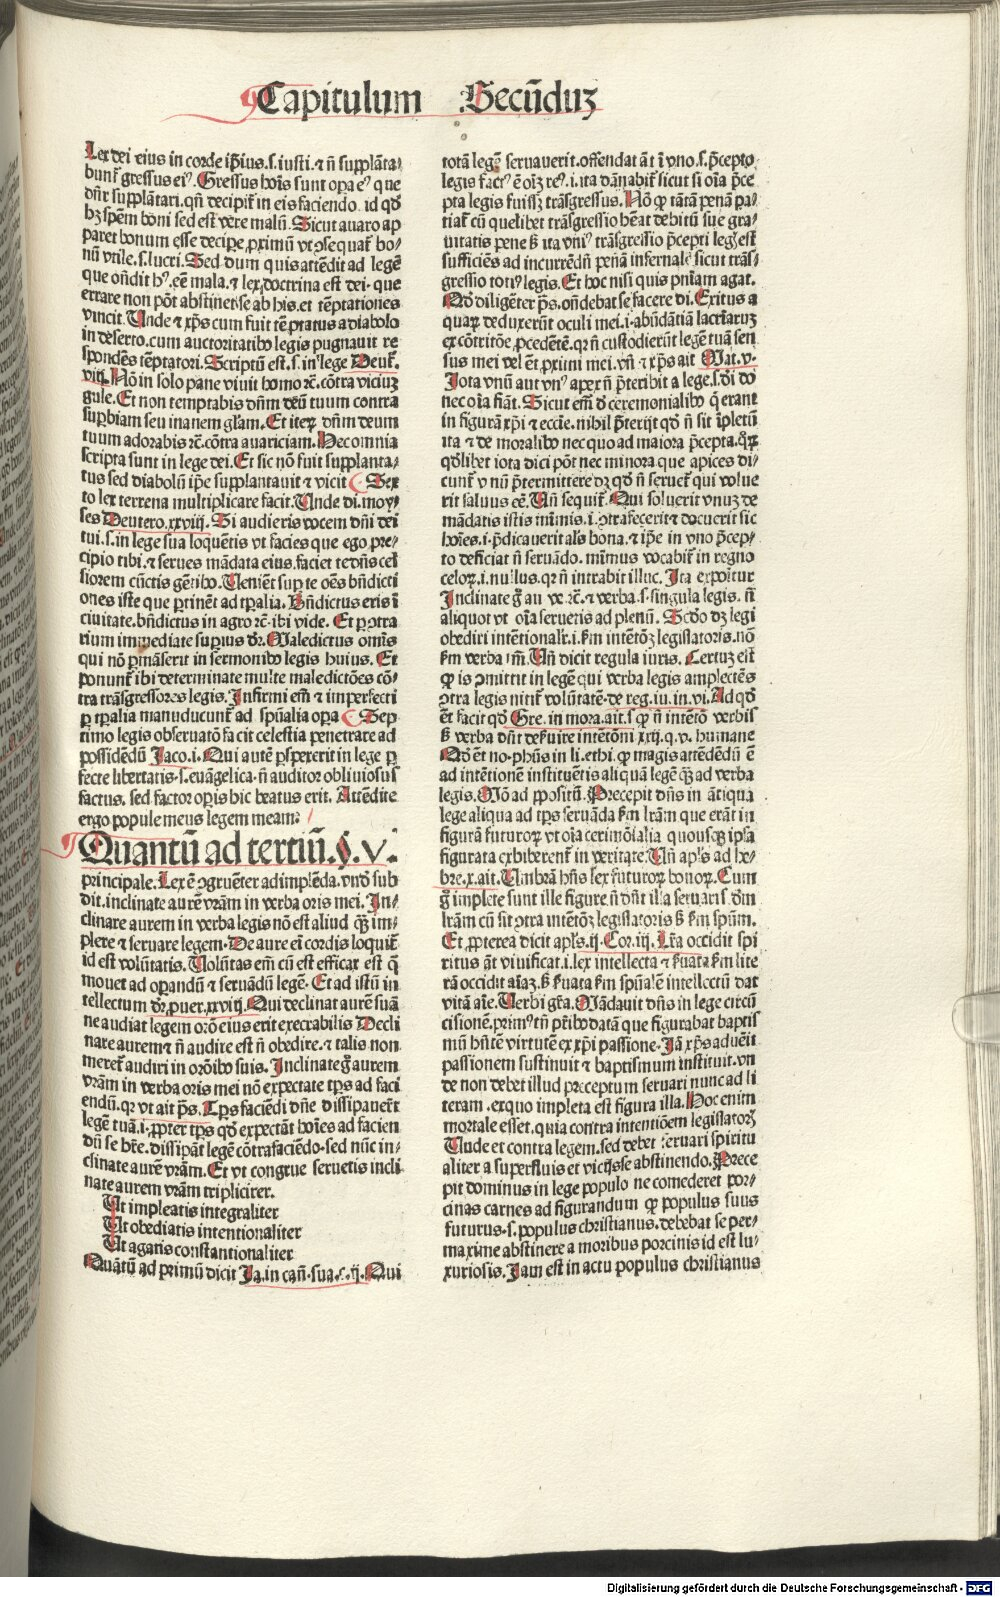 Capitulum Secūduʒ
Lex dei eius in corde ip̄ius.s.iusti.⁊ n̄ supplāta⸗
bunt̄ gressus eiꝰ. Gressus hoīs sunt oꝑa eꝰ que
dn̄r supplātari.qn̄ decipit̄ in eis faciendo id qđ
hꝫ spēm boni sed est vere malū. Sicut auaro ap
paret bonum esse decipe ꝓximū vt ꝯsequat̄ bo⸗
nū vtile.s.lucri. Sed dum quis attēdit ad legē
que on̄dit hꝰ eē mala.⁊ lex doctrina est dei.que
errare non pōt abstinet se ab his.et tēptationes
vincit. Unde ⁊ xp̄s cum fuit tēptatus a diabolo
in deserto.cum auctoritatibꝰ legis pugnauit re
spondēs tēptatori. Scriptū est.s.in lege Deut̄.
viij. Nō in solo pane viuit homo ⁊c.cōtra viciuʒ
gule. Et non temptabis dn̄m deū tuum contra
suꝑbiam seu inanem gl̄am. Et iteꝝ dn̄m deum
tuum adorabis ⁊c.cōtra auariciam. Hec omnia
scripta sunt in lege dei. Et sic nō fuit supplanta⸗
tus sed diabolū ip̄e supplantauit ⁊ vicit Sex
to lex terrena multiplicare facit. Unde di.moy⸗
ses Deutero.xxviij. Si audieris vocem dn̄i dei
tui.s.in lege sua loquētis vt facies que ego pre⸗
cipio tibi.⁊ serues mādata eius.faciet te dn̄s cel̄
siorem cūctis gētibꝰ. Venient sup̄ te oēs bn̄dicti
ones iste que ꝑtinēt ad tꝑalia. Bn̄dictus eris ī
ciuitate.bn̄dictus in agro ⁊c.ibi vide. Et ꝑ ꝯtra
rium immediate suꝑius dr̄. Maledictus omīs
qui nō ꝑmāserit in sermonibꝰ legis huius. Et
ponunt̄ ibi determinate multe maledictōes cō⸗
tra trāsgressores legis. Infirmi em̄ ⁊ imperfecti
ꝑ tꝑalia manuducunt̄ ad sp̄ualia oꝑa Sep
timo legis obseruatō facit celestia penetrare ad
possidēdū Jaco.i. Qui autē ꝑspexerit in lege ꝑ
fecte libertatis.s.euāgelica.n̄ auditor obliuiosus
factus.sed factor oꝑis hic beatus erit. Attēdite
ergo popule meus legem meam.
Quantū ad tertiū.§.v.
principale. Lex ē ꝯgruēter adimplēda.vnđ sub
dit.inclinate aurē vrām in verba oris mei. In⸗
clinare aurem in verba legis nō est aliud qʒ im⸗
plere ⁊ seruare legem. De aure em̄ cordis loquit̄
id est volūtatis. Volūtas em̄ cū est efficax est q̄
mouet ad oꝑandū ⁊ seruādū legē. Et ad istū in
tellectum dr̄.ꝓuer.xxviij. Qui declinat aurē suā
ne audiat legem orō eius erit execrabilis Decli
nare aurem ⁊ n̄ audire est n̄ obedire.⁊ talis non
meret̄ audiri in orōibꝰ suis. Inclinate ḡ aurem
vrām in verba oris mei nō expectate tp̄s ad faci
endū.qꝛ vt ait p̄s. Tp̄s faciēdi dn̄e dissipauer̄t
legē tuā.i.ꝓpter tp̄s qđ expectāt hoīes ad facien
dū se bn̄e.dissipāt legē cōtrafaciēdo.sed nūc in⸗
clinate aurē vrām. Et vt congrue seruetis incli
nate aurem vram tripliciter.
Ut impleatis integraliter
Ut obediatis intentionaliter
Ut agatis constantionaliter
Quātū ad primū dicit Ja.in can̄.sua.c.ij. Qui
totā legē seruauerit.offendat āt ī vno.s.p̄cepto
legis factꝰ ē oīʒ reꝰ.i.ita dānabit̄ sicut si oīa p̄ce
pta legis fuissꝫ trāsgressus. Nō ꝙ tātā penā pa⸗
tiat̄ cū quelibet trāsgressio hēat debitū sue gra⸗
uitatis pene ß ita vniꝰ trāsgressio p̄cepti leg̉ est
sufficiēs ad incurrēdū penā infernalē sicut trās⸗
gressio totiꝰ legis. Et hoc nisi quis pn̄iam agat.
Qđ diligēter p̄s.on̄debat se facere di. Exitus a
quaꝝ deduxerūt oculi mei.i.abūdātiā lacrimaꝝ
ex cōtritōe ꝓcedētē.qꝛ n̄ custodierūt legē tuā sen
sus mei vel ēt ꝓximi mei.vn̄ ⁊ xp̄s ait Mat.v.
Iota vnū aut vnꝰ apex n̄ p̄teribit a lege.s.di dō
nec oīa fiāt. Sicut em̄ đ ceremonialibꝰ q̄ erant
in figurā xp̄i ⁊ eccl̄ie.nihil p̄terijt qđ n̄ sit īpletū
ita ⁊ de moralibꝰ nec quo ad maiora p̄cepta.q̄ꝝ
qđlibet iota dici pōt nec minora que apices di⸗
cunt̄ v nū p̄termittere dꝫ qđ n̄ seruet̄ qui volue
rit saluus eē. Vn̄ sequit̄. Qui soluerit vnuʒ de
mādatis istis mīmis.i.ꝯtrafecerit ⁊ docuerit sic
hoīes.i.p̄dicauerit al̄s bona.⁊ ip̄e in vno p̄cep⸗
to deficiat n̄ seruādo.mīmus vocabit̄ in regno
celoꝝ.i.nullus.qꝛ n̄ intrabit illuc. Ita exponitur
Inclinate ḡ au ve ⁊c.⁊ verba.s.singula legis. n̄
aliquot vt oīa serueris ad plenū. Scđo dꝫ legi
obediri intētionalr̄.i.ẜm intētōꝫ legislatoris.nō
ẜm verba tm̄. Un̄ dicit regula iuris. Certuʒ est
ꝙ is ꝯmittit in legē qui verba legis amplectēs
ꝯtra legis nitit̄ volūtatē.de reg.iu.in.vi. Ad qđ
ēt facit qđ Gre.in mora.ait.s.ꝙ n̄ intētō verbis
ß verba dn̄t deẜuire intētōni xxij.q.v. humane
Qđ ēt no.ph̄us in li.ethi.ꝙ magis attēdēdū ē
ad intētionē instituētis aliquā legē qʒ ad verba
legis. Mō ad ꝓpositū. Precepit dn̄s in ātiqua
lege aliqua ad tp̄s seruāda ẜm lr̄am que erāt in
figurā futuroꝝ vt oīa cerimōialia quousqꝫ ip̄a
figurata exhiberent̄ in veritate. Un̄ apl̄s ad he⸗
bre.x.ait. Umbrā hn̄s lex futuroꝝ bonoꝝ. Cum
ḡ implete sunt ille figure n̄ dn̄t illa seruaris ẜm
lr̄am cū sit ꝯtra intētōꝫ legislatoris ß ẜm sp̄um.
Et ꝓpterea dicit apl̄s.ij. Cor.iij. Lr̄a occidit spi
ritus āt viuificat.i.lex intellecta ⁊ ẜuata ẜm lite
rā occidit aīaʒ.ß ẜuata ẜm sp̄ualē intellectū dat
vitā aīe. Verbi gr̄a. Mādauit dn̄s in lege circū
cisionē.primꝰ tn̄ pr̄ibꝰ datā que figurabat baptis
mū hn̄tē virtutē ex xp̄i passione. Jā xp̄s aduēit
passionem sustinuit ⁊ baptismum instituit.vn
de non debet illud preceptum seruari nunc ad li
teram.exquo impleta est figura illa. Hoc enim
mortale esset.quia contra intentiōem legislatoꝝ
Unde et contra legem.sed debet seruari spiritu
aliter a superfluis et vicijs se abstinendo. Prece
pit dominus in lege populo ne comederet por⸗
cinas carnes ad figurandum ꝙ populus suus
futurus.s.populus christianus.debebat se per⸗
maxime abstinere a moribus porcinis id est lu⸗
xuriosis. Jam est in actu populus christianus
Digitalisierung gefördert durch die Deutsche Forschungsgemeinschaft - DFG